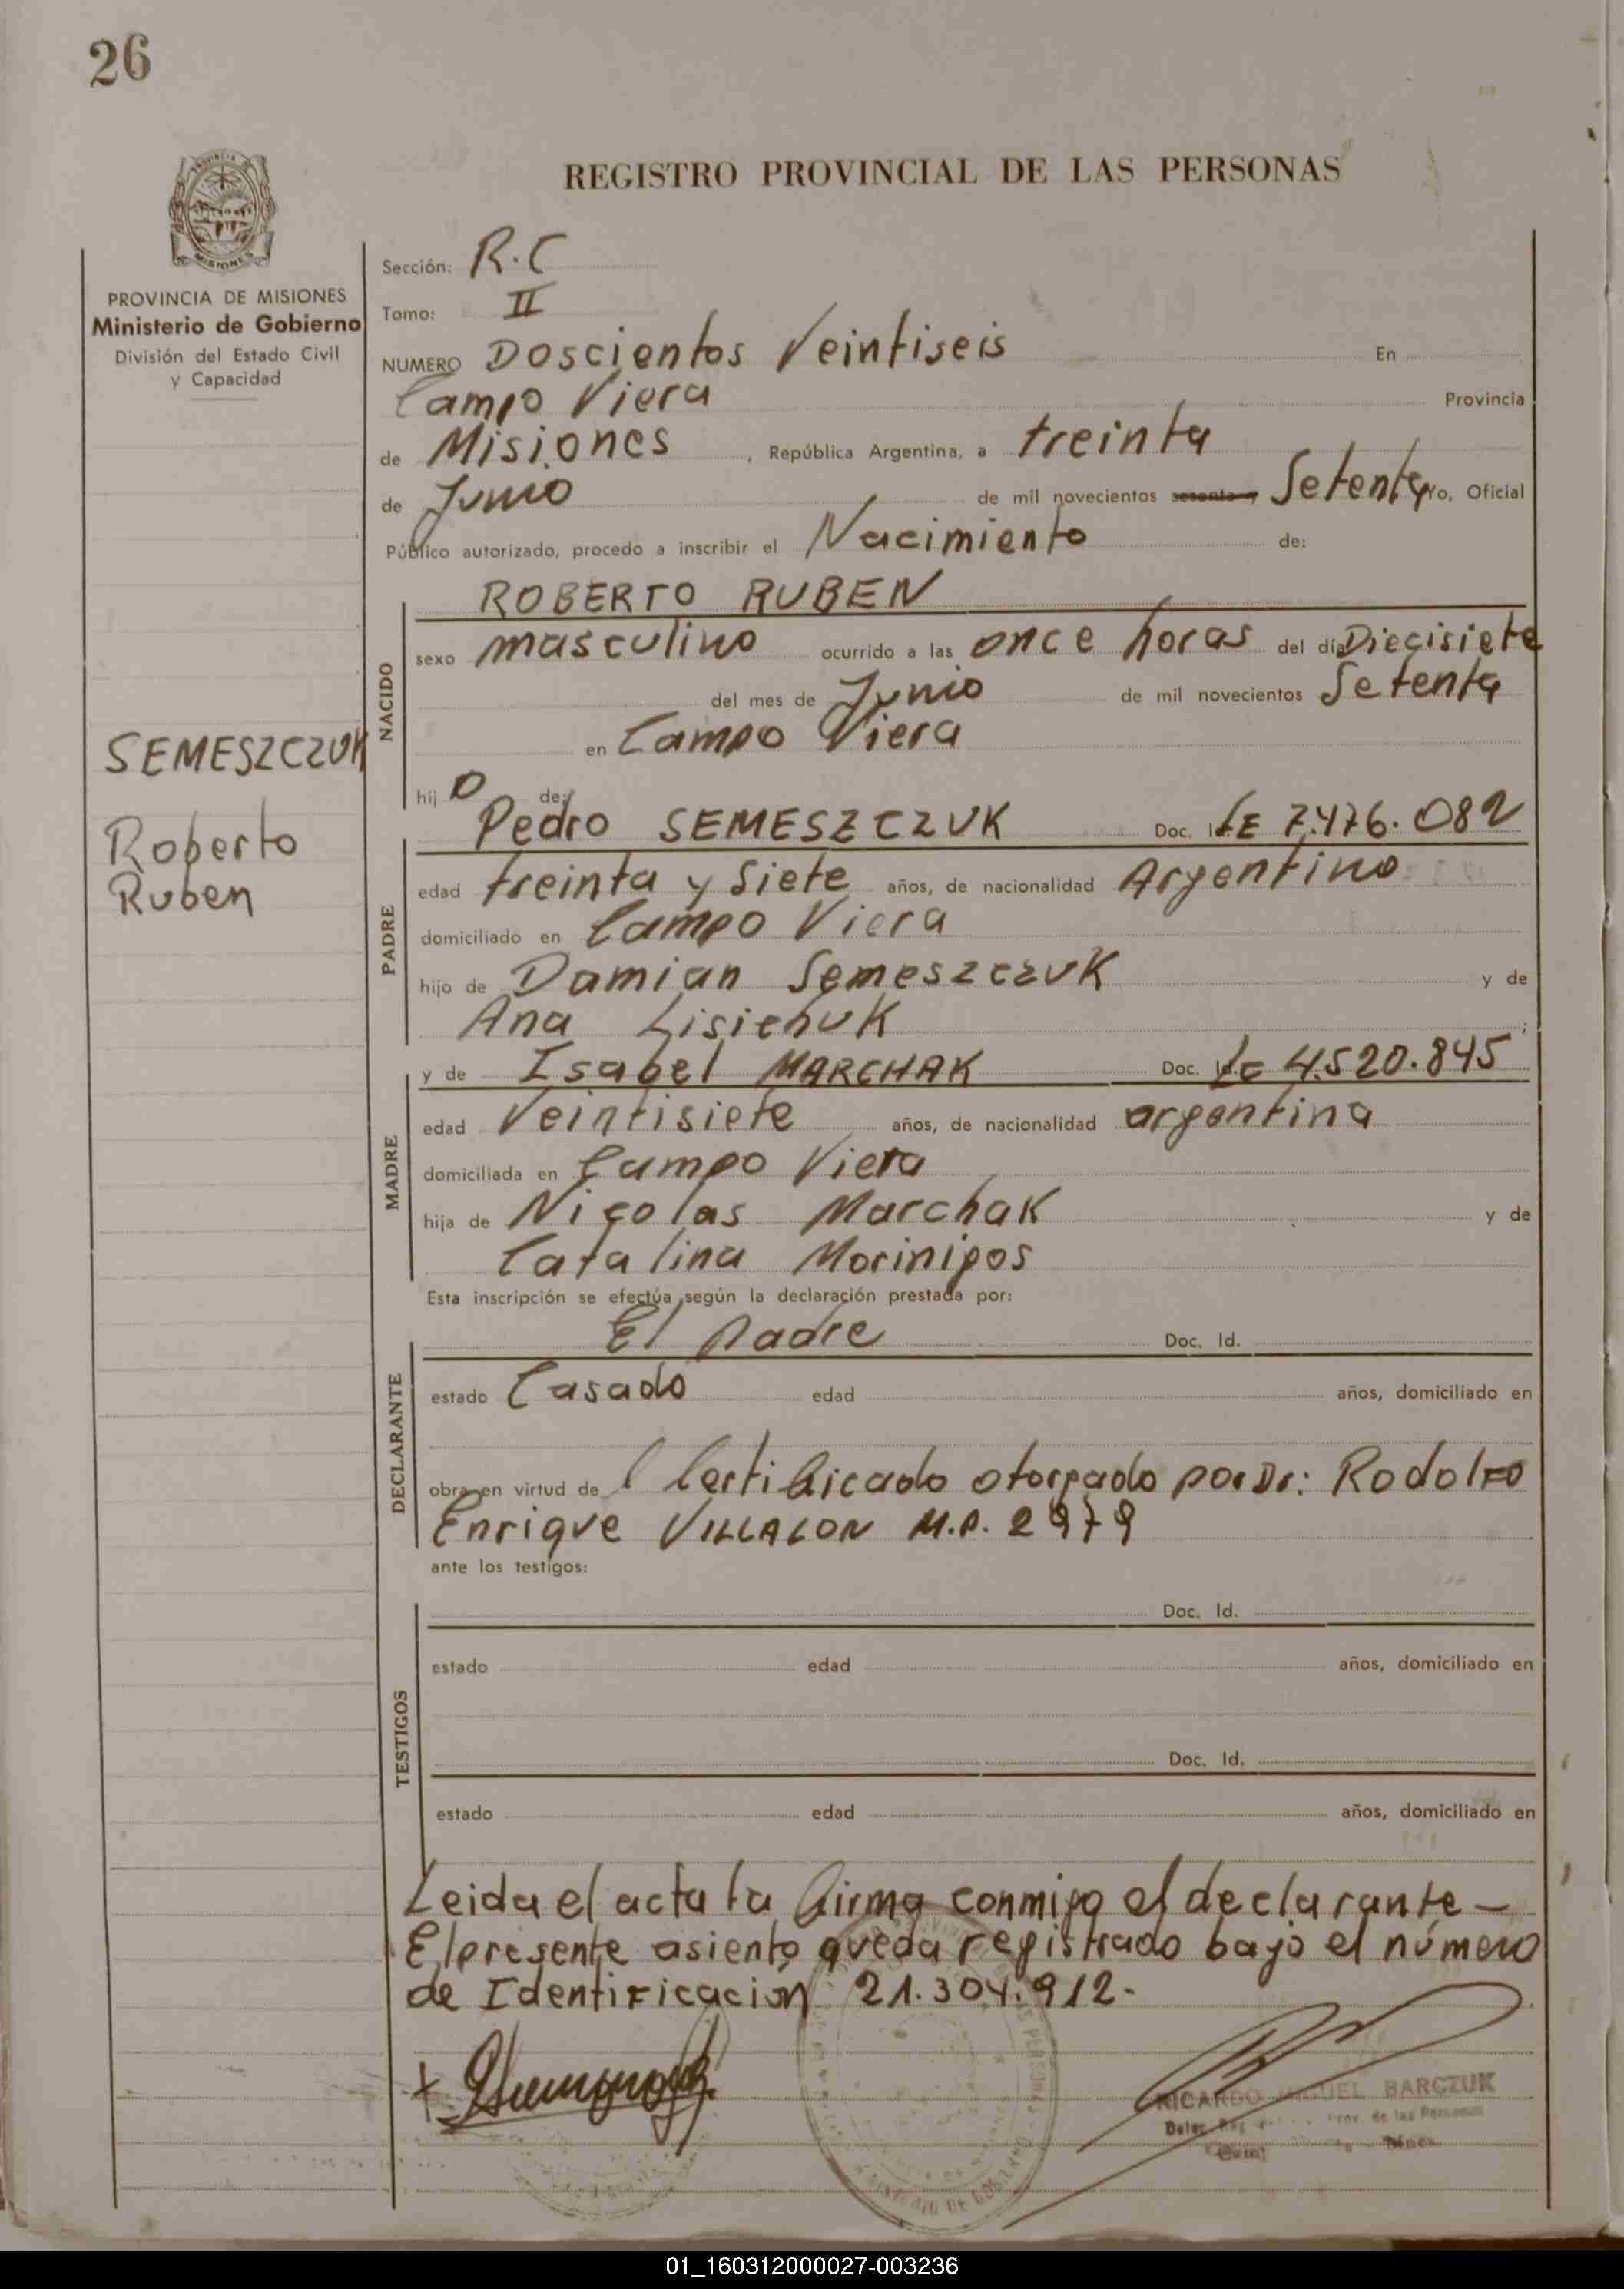 26
REGISTRO PROVINCIAL DE LAS PERSONAS
MISIONES
PROVINCIA DE MISIONES
Ministerio de Gobierno
División del Estado Civil
y Capacidad
SEMESZCZUK
Roberto
Ruben
Sección: R.C
Tomo: II
NUMERO Doscientos Veintiseis En
Campo Viera Provincia
de Misiones, República Argentina, a treinta
de Junio de mil novecientos sesenta y Setenta yo, Oficial
Público autorizado, procedo a inscribir el Nacimiento de:
NACIDO
ROBERTO RUBEN
sexo masculino ocurrido a las once horas del día Diecisiete
del mes de Junio de mil novecientos Setenta
en Campo Viera
hij o de:
PADRE
Pedro SEMESZCZUK Doc. Id. LE 7.476.082
edad treinta y siete años, de nacionalidad Argentino
domiciliado en Campo Viera
hijo de Damian Semeszczuk y de
Ana Lisichuk ;
MADRE
y de Isabel MARCHAK Doc. Id. LC 4.520.845
edad Veintisiete años, de nacionalidad argentina
domiciliada en Campo Viera
hija de Nicolas Marchak y de
Catalina Morinigos
Esta inscripción se efectúa según la declaración prestada por:
DECLARANTE
El padre Doc. Id.
estado Casado edad años, domiciliado en
obra en virtud de l Certificado otorgado por Dr: Rodolfo
Enrique VILLALON M.P. 2979
ante los testigos:
TESTIGOS
Doc. Id.
estado edad años, domiciliado en
Doc. Id.
estado edad años, domiciliado en
Leida el acta la firma conmigo el declarante -
El presente asiento queda registrado bajo el número
de Identificación 21.304.912.-
RICARDO MIGUEL BARCZUK
Prov. de las Personas
01_160312000027-003236